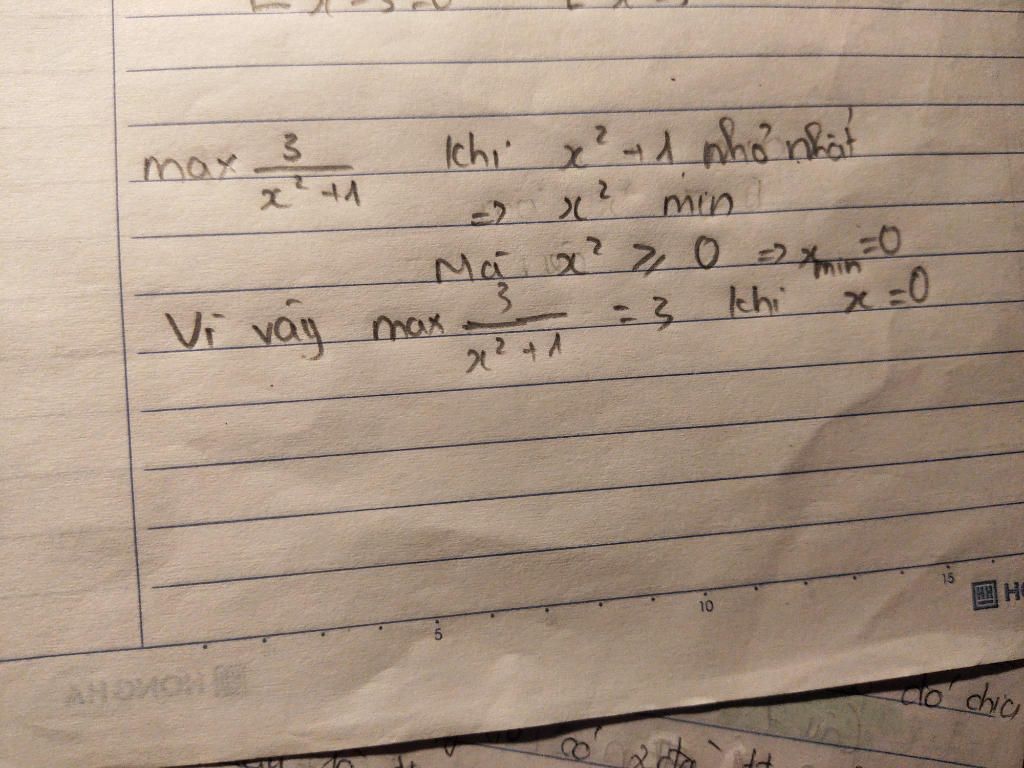 max 3/(x² + 1) khi x² + 1 nhỏ nhất
=> x² min
Mà x² ⩾ 0 => x min = 0
Vì vậy max 3/(x² + 1) = 3 khi x = 0
5 10 15
HỒNG HÀ
đó chia
có 2